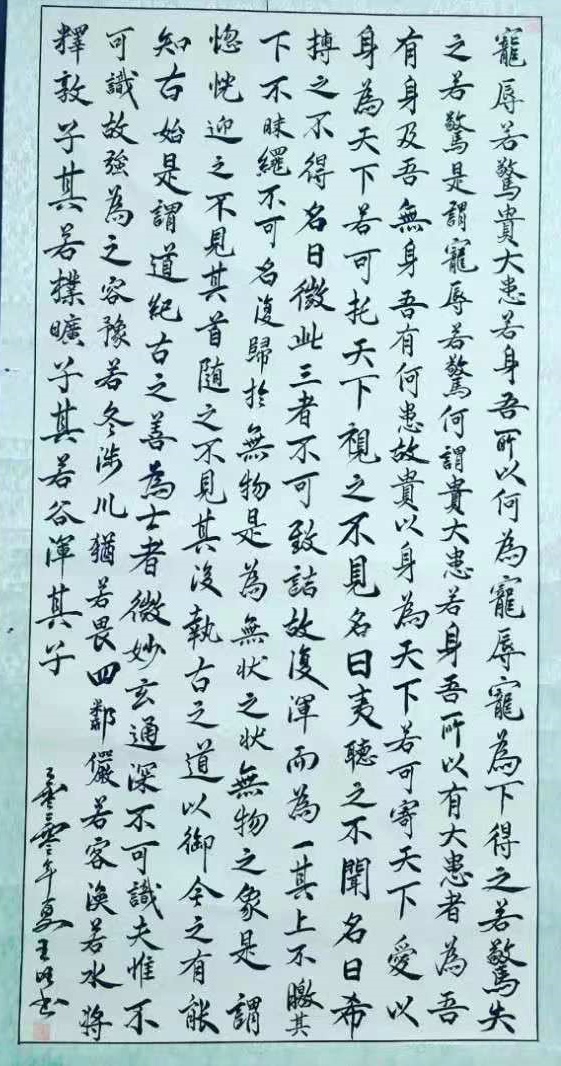 寵辱若驚貴大患若身吾所以何為寵辱寵為下得之若驚失
之若驚是謂寵辱若驚何謂貴大患若身吾所以有大患者為吾
有身及吾無身吾有何患故貴以身為天下若可寄天下愛以
身為天下若可托天下視之不見名曰夷聽之不聞名曰希
搏之不得名曰微此三者不可致詰故復渾而為一其上不皦其
下不昧繩不可名復歸於無物是為無状之状無物之象是謂
惚恍迎之不見其首随之不見其後執古之道以御今之有能
知古始是謂道紀古之善為士者微妙玄通深不可識夫惟不
可識故強為之容豫若冬涉川猶若畏四鄰儼若容渙若水將
釋敦子其若樸曠子其若谷渾其子
年夏王书